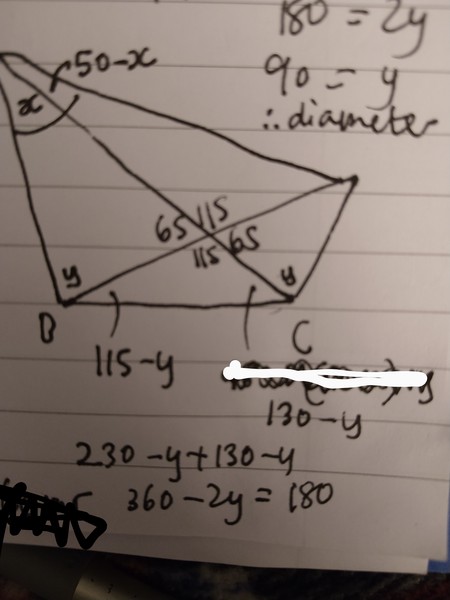 180 = 2y
90 = y
∴ diameter
50-x
x
65 115
115 65
y
y
B
C
115-y
130-y
230-y+130-y
360-2y = 180